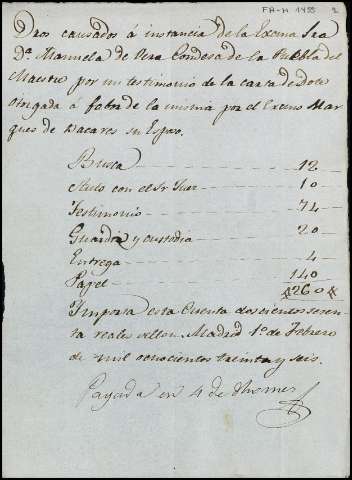 FA-M 1455 2
Dros causados á instancia de la Excma Sra
Da. Manuela de Vera Condesa de la Puebla del
Maestre por un testimonio de la carta de dote
otorgada á fabor de la misma por el Excmo Mar
ques de Bacares su Esposo.
Busca 12
Auto con el Sr Juez 10
Testimonio 74
Guardia y custodia 20
Entrega 4
Papel 140
#260#
Importa esta Cuenta doscientos sesen
ta reales vellon. Madrid 1o. de Febrero
de mil ochocientos treinta y seis.
Pagada en 4 de